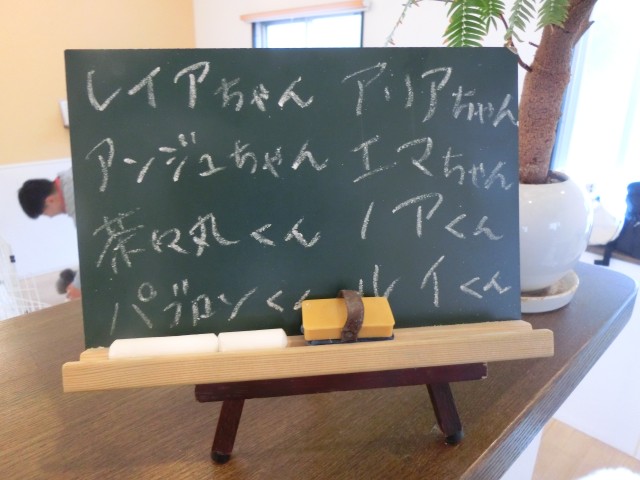 レイアちゃん アリアちゃん
アンジュちゃん エマちゃん
茶々丸くん ノアくん
パブロンくん ルイくん